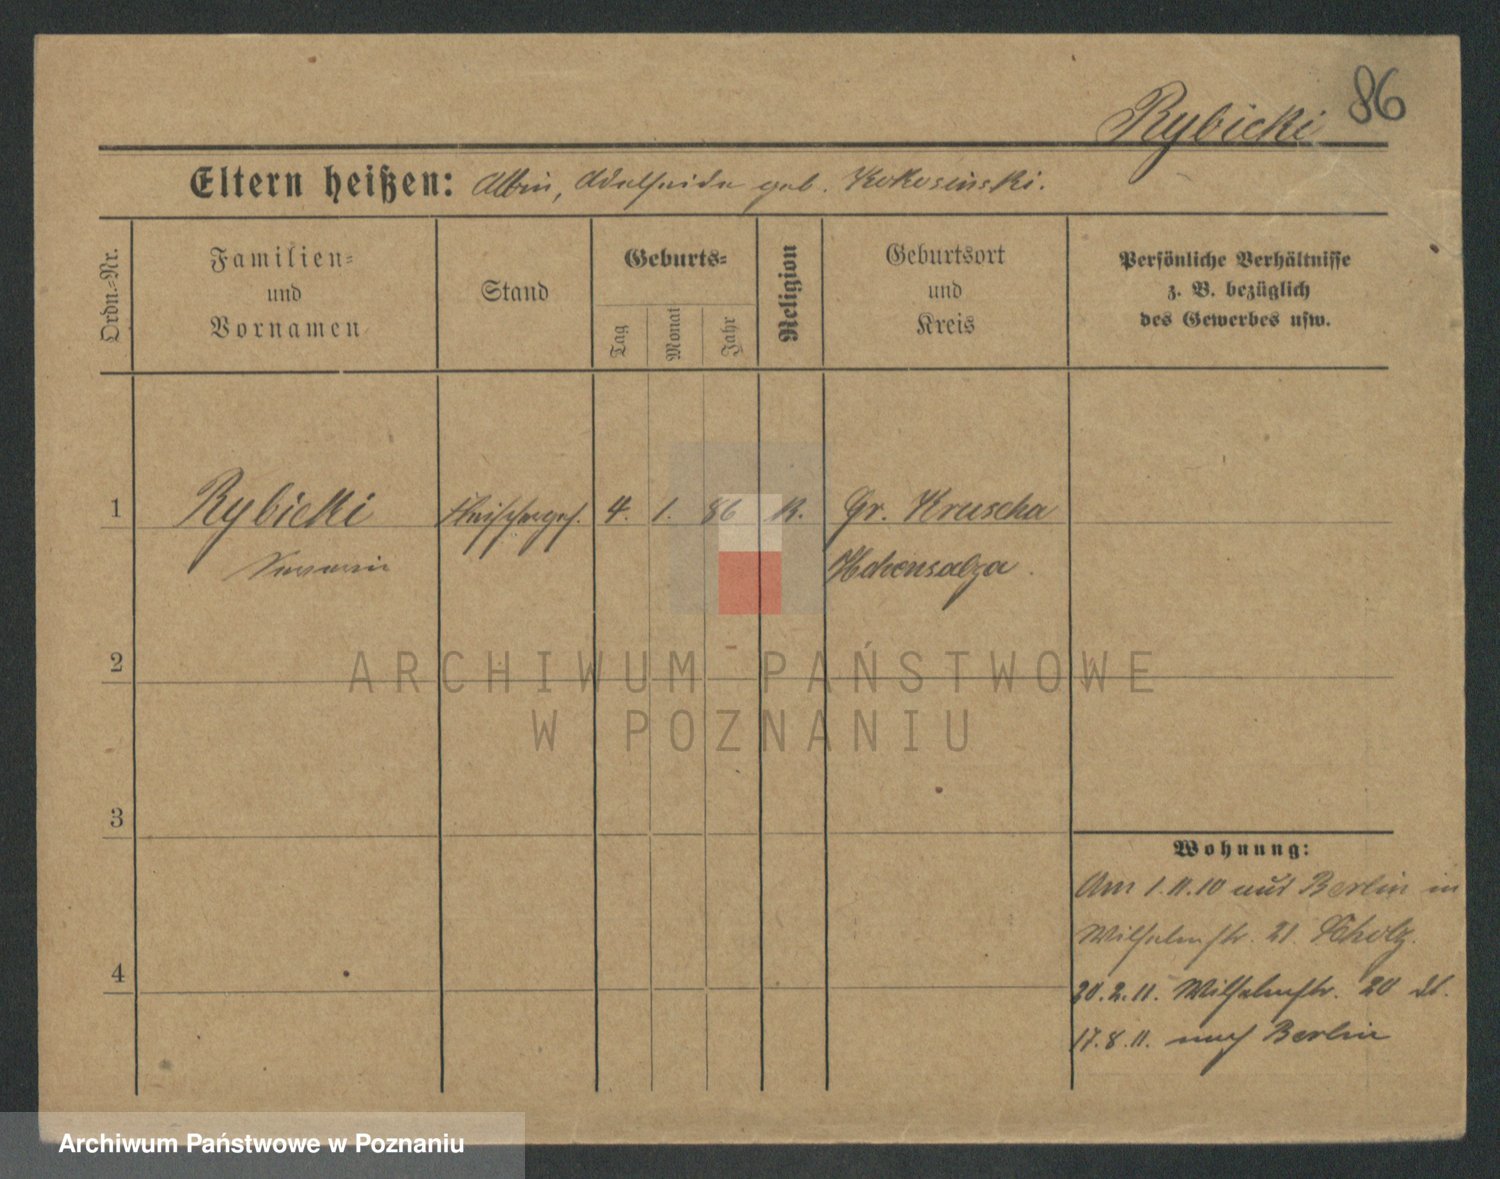 86
Rybicki
Eltern heißen: Albin, Adelheida geb. Kokosinski.
Ordn.-Nr.
Familien-
und
Vornamen
Stand
Geburts-
Tag
Monat
Jahr
Religion
Geburtsort
und
Kreis
Persönliche Verhältnisse
z. B. bezüglich
des Gewerbes usw.
1 Rybicki Fleischerges. 4. 1. 86 K. Gr. Kruscha
Hohensalza.
2
ARCHIWUM PAŃSTWOWE
W POZNANIU
3
Wohnung:
Am 1.11.10 aus Berlin in
Wilhelmstr. 21.
4
20.2.11. Wilhelmstr. 20
17.8.11. nach Berlin
Archiwum Państwowe w Poznaniu